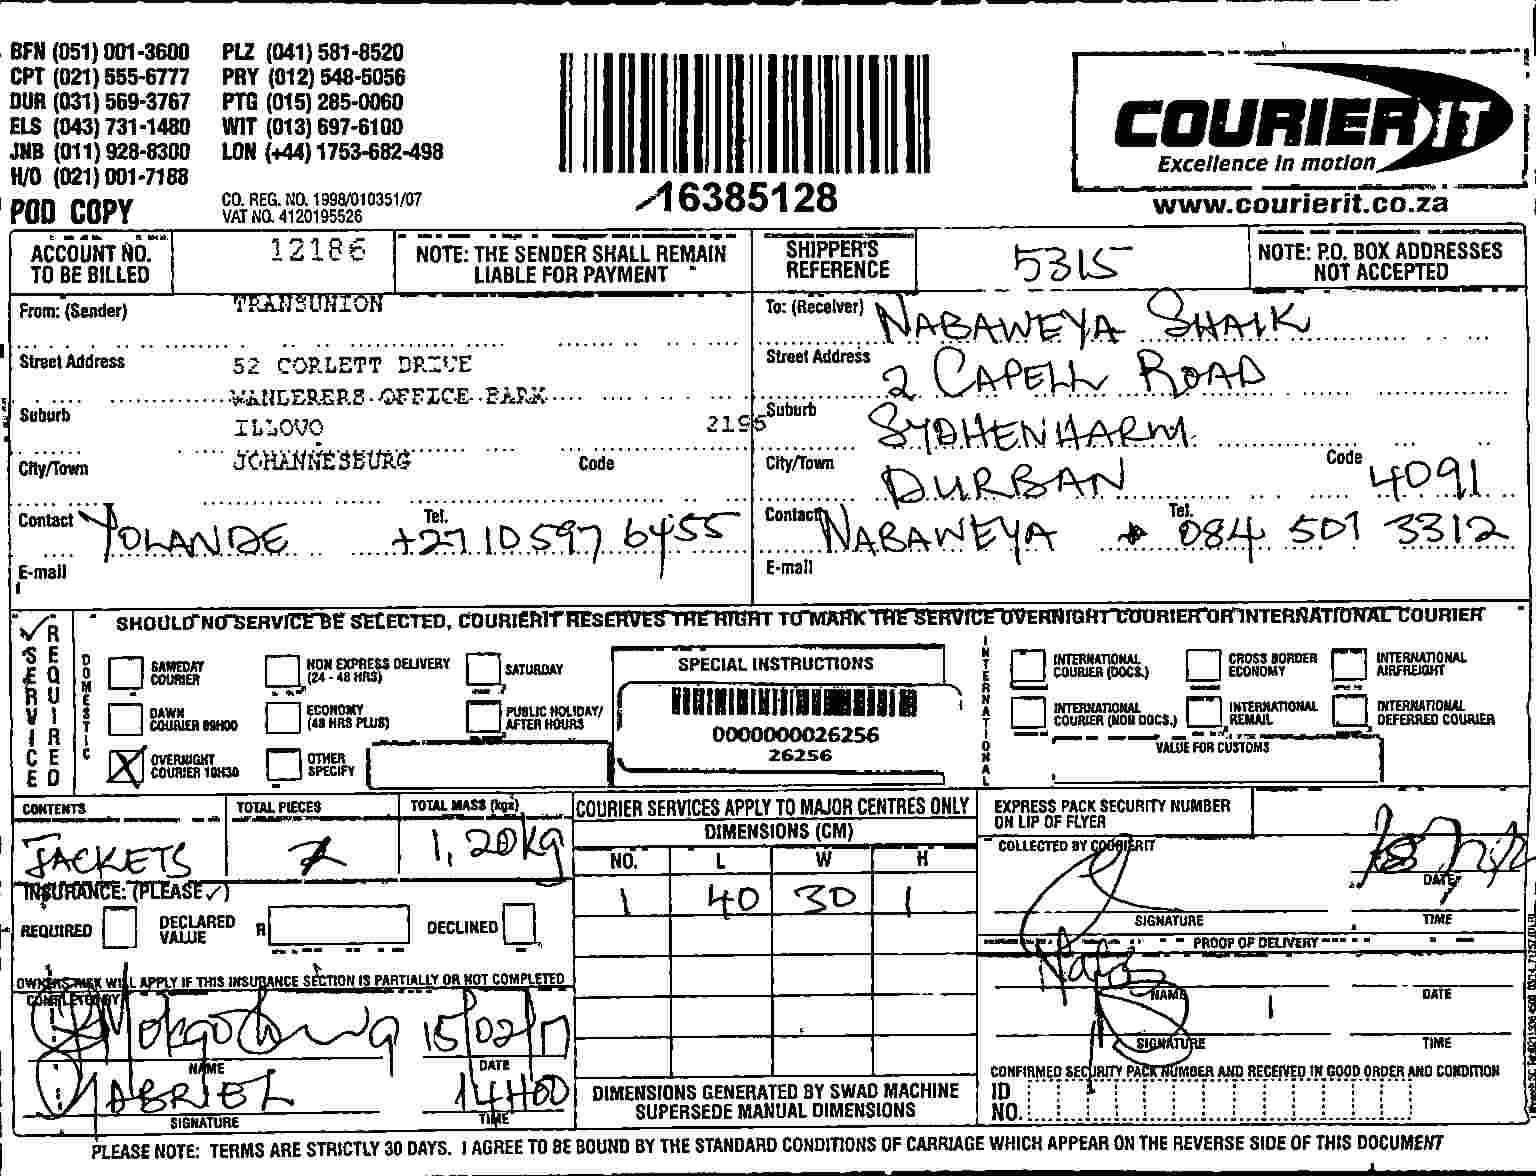 BFN (051) 001-3600 PLZ (041) 581-8520
CPT (021) 555-6777 PRY (012) 548-5056
DUR (031) 569-3767 PTG (015) 285-0060
ELS (043) 731-1480 WIT (013) 697-6100
JNB (011) 928-8300 LON (+44) 1753-682-498
H/O (021) 001-7188
POD COPY
CO. REG. NO. 1998/010351/07
VAT NO. 4120195526
16385128
COURIER IT
Excellence in motion
www.courierit.co.za
ACCOUNT NO. TO BE BILLED
12186
NOTE: THE SENDER SHALL REMAIN LIABLE FOR PAYMENT
SHIPPER'S REFERENCE
5315
NOTE: P.O. BOX ADDRESSES NOT ACCEPTED
From: (Sender) TRANSUNION
Street Address 52 CORLETT DRIVE
WANDERERS OFFICE PARK
Suburb ILLOVO 2196
City/Town JOHANNESBURG Code
Contact YOLANDE Tel. +27 10 597 6455
E-mail
To: (Receiver) NABAWEYA SHAIK
Street Address 2 CAPELL ROAD
Suburb SYDHENHARM
City/Town DURBAN Code 4091
Contact NABAWEYA Tel. 084 501 3312
E-mail
SHOULD NO SERVICE BE SELECTED, COURIERIT RESERVES THE RIGHT TO MARK THE SERVICE OVERNIGHT COURIER OR INTERNATIONAL COURIER
SERVICE REQUIRED
DOMESTIC
SAMEDAY COURIER
NON EXPRESS DELIVERY (24 - 48 HRS)
SATURDAY
DAWN COURIER 09H00
ECONOMY (48 HRS PLUS)
PUBLIC HOLIDAY/ AFTER HOURS
X OVERNIGHT COURIER 10H30
OTHER SPECIFY
SPECIAL INSTRUCTIONS
0000000026256
26256
INTERNATIONAL
INTERNATIONAL COURIER (DOCS.)
CROSS BORDER ECONOMY
INTERNATIONAL AIRFREIGHT
INTERNATIONAL COURIER (NON DOCS.)
INTERNATIONAL REMAIL
INTERNATIONAL DEFERRED COURIER
VALUE FOR CUSTOMS
CONTENTS TOTAL PIECES TOTAL MASS (kgs)
JACKETS 1,20kg
INSURANCE: (PLEASE ✓)
REQUIRED DECLARED VALUE R DECLINED
OWNERS RISK WILL APPLY IF THIS INSURANCE SECTION IS PARTIALLY OR NOT COMPLETED
COMPLETED BY
15/02/17
NAME DATE
GABRIEL 14H00
SIGNATURE TIME
COURIER SERVICES APPLY TO MAJOR CENTRES ONLY
DIMENSIONS (CM)
NO. L W H
1 40 30 1
DIMENSIONS GENERATED BY SWAD MACHINE
SUPERSEDE MANUAL DIMENSIONS
EXPRESS PACK SECURITY NUMBER ON LIP OF FLYER
COLLECTED BY COURIERIT
DATE
SIGNATURE TIME
PROOF OF DELIVERY
NAME DATE
SIGNATURE TIME
CONFIRMED SECURITY PACK NUMBER AND RECEIVED IN GOOD ORDER AND CONDITION
ID NO.
PLEASE NOTE: TERMS ARE STRICTLY 30 DAYS. I AGREE TO BE BOUND BY THE STANDARD CONDITIONS OF CARRIAGE WHICH APPEAR ON THE REVERSE SIDE OF THIS DOCUMENT